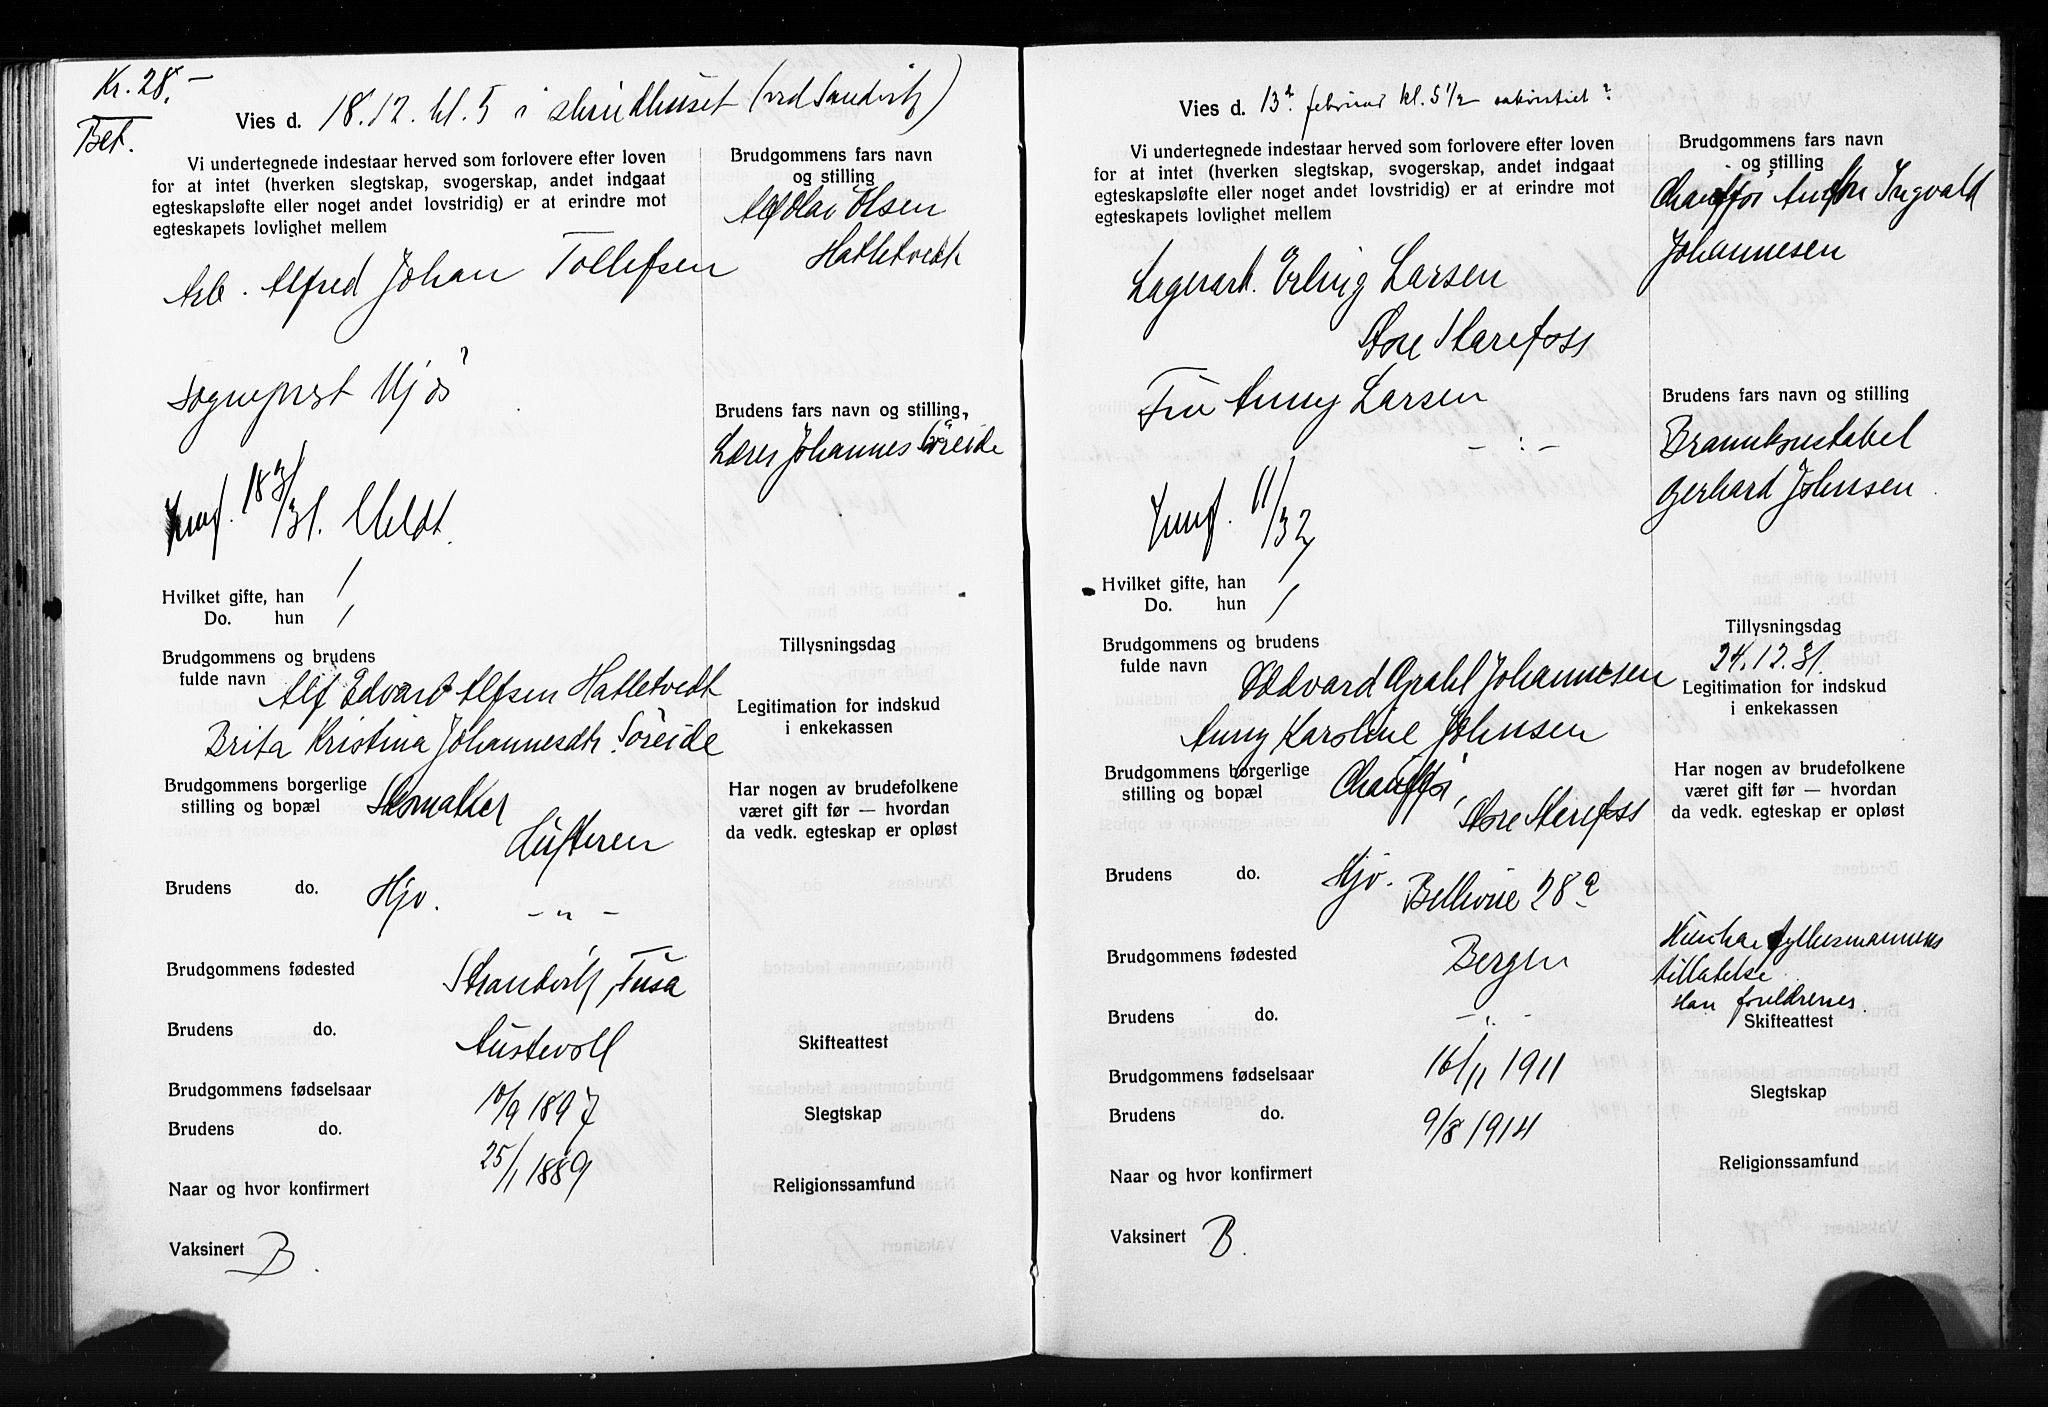 Kr. 28.-
Bet.
Vies d. 18.12. kl. 5 i (ved Sandvik)
Vi undertegnede indestaar herved som forlovere efter loven
for at intet (hverken slegtskap, svogerskap, andet indgaat
egteskapsløfte eller noget andet lovstridig) er at erindre mot
egteskapets lovlighet mellem
Brudgommens fars navn
og stilling
Olai Olsen
Hatletvedt
Arb. Alfred Johan Tollefsen
Sogneprest Mjøs
Brudens fars navn og stilling
Johannes Søreide
31. Meldt.
Hvilket gifte, han 1
Do. hun 1
Tillysningsdag
Brudgommens og brudens
fulde navn
Alf Edvard Alfsen Hatletvedt
Brita Kristina Johannesdtr. Søreide
Legitimation for indskud
i enkekassen
Brudgommens borgerlige
stilling og bopæl Skomaker
Hufteren
Har nogen av brudefolkene
været gift før — hvordan
da vedk. egteskap er opløst
Brudens do. Hjv. - " -
Brudgommens fødested Strandvik, Fusa
Brudens do. Austevoll
Skifteattest
Brudgommens fødselsaar 10/9 1897
Slegtskap
Brudens do. 25/1 1889
Naar og hvor konfirmert
Religionssamfund
Vaksinert B.
Vies d. 13de februar kl. 5 1/2 sakristiet?
Vi undertegnede indestaar herved som forlovere efter loven
for at intet (hverken slegtskap, svogerskap, andet indgaat
egteskapsløfte eller noget andet lovstridig) er at erindre mot
egteskapets lovlighet mellem
Brudgommens fars navn
og stilling
Chauffør Ingvald
Johannesen
Lagerarb. Erling Larsen
Store Starefoss
Fru Anny Larsen
- " -
Brudens fars navn og stilling
Brannkonstabel
Gerhard Johnsen
11/32
Hvilket gifte, han 1
Do. hun 1
Tillysningsdag
24.12.31.
Brudgommens og brudens
fulde navn
Edvard Grahl Johannesen
Anny Karoline Johnsen
Legitimation for indskud
i enkekassen
Brudgommens borgerlige
stilling og bopæl Chauffør,
Store Starefoss
Har nogen av brudefolkene
været gift før — hvordan
da vedk. egteskap er opløst
Brudens do. Hjv. Bellevue 28a
Brudgommens fødested Bergen
Hun har fylkesmannens
tillatelse
Han foreldrenes.
Brudens do. - " -
Skifteattest
Brudgommens fødselsaar 16/11 1911
Slegtskap
Brudens do. 9/8 1914
Naar og hvor konfirmert
Religionssamfund
Vaksinert B.